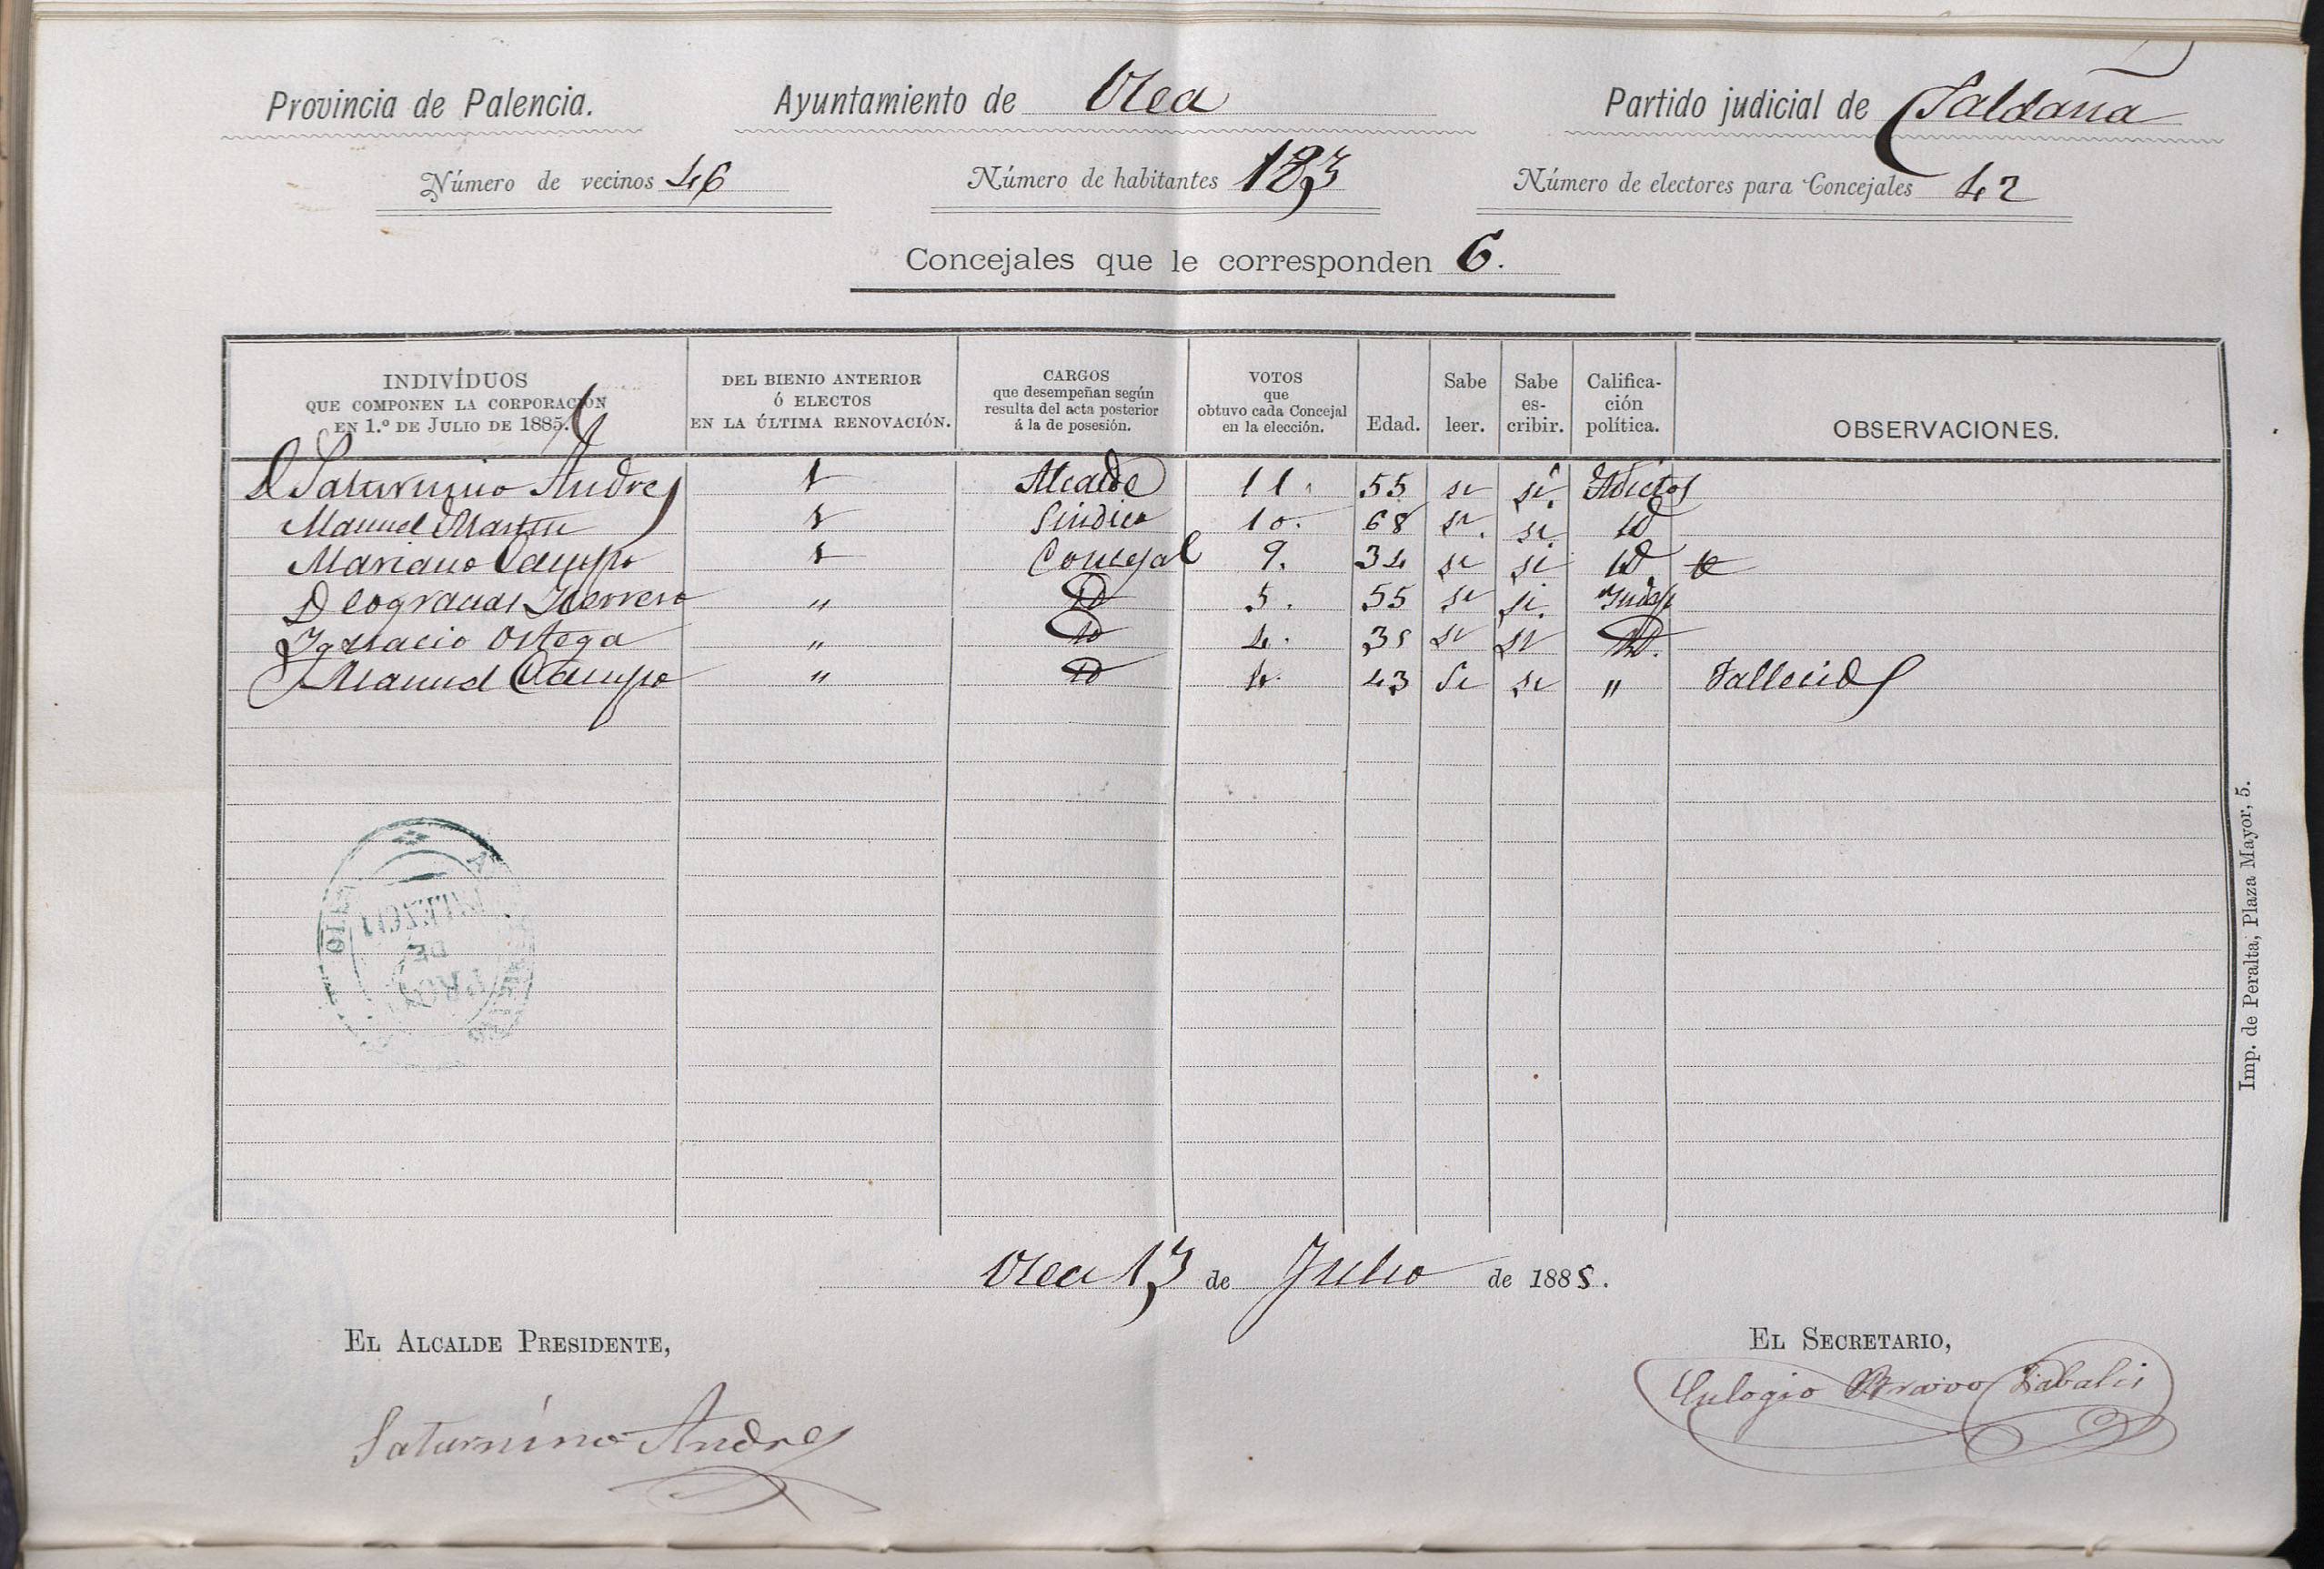 Provincia de Palencia. Ayuntamiento de Olea Partido judicial de Saldaña
Número de vecinos 46 Número de habitantes 183 Número de electores para Concejales 42
Concejales que le corresponden 6.
INDIVÍDUOS QUE COMPONEN LA CORPORACIÓN EN 1.º DE JULIO DE 1885. DEL BIENIO ANTERIOR Ó ELECTOS EN LA ÚLTIMA RENOVACIÓN. CARGOS que desempeñan según resulta del acta posterior á la de posesión. VOTOS que obtuvo cada Concejal en la elección. Edad. Sabe leer. Sabe es-cribir. Califica-ción política. OBSERVACIONES.
D Saturnino Andres Alcalde 11. 55 si si. Adictos
Manuel Martin Sindico 10. 68 si. si. id
Mariano Campo Concejal 9. 34 si si id
Deogracias Herrero " id 5. 55 si si. Indep
Ygnacio Ortega " id 4. 38 si si id.
Manuel Campo " id 4. 43 Si si " Fallecido
OLEA
PALENCIA
DE
PROV
Olea 13 de Julio de 1885.
EL ALCALDE PRESIDENTE, EL SECRETARIO,
Saturnino Andres Eulogio Bravo
Imp. de Peralta, Plaza Mayor, 5.